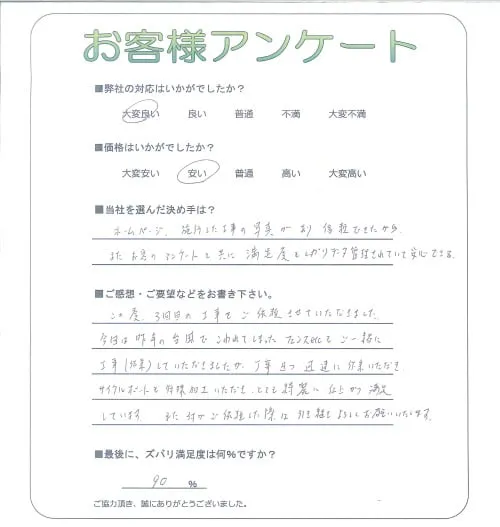 お客様アンケート
■弊社の対応はいかがでしたか？
大変良い 良い 普通 不満 大変不満
■価格はいかがでしたか？
大変安い 安い 普通 高い 大変高い
■当社を選んだ決め手は？
ホームページ、施行した工事の写真があり 信頼できたから
また お客のアンケートと共に 満足度もしっかりデータ管理されていて安心できる。
■ご感想・ご要望などをお書き下さい。
この度、3回目の工事をご依頼させていただきました。
今回は昨年の台風でこわれてしまった もご一緒に
工事(作業)していただきましたが、丁寧且つ迅速に作業いただき
サイクルポートも 加工いただき、とても綺麗に仕上がり満足
しています。 また何かご依頼した際は引き続きよろしくお願いいたします。
■最後に、ズバリ満足度は何％ですか？
90 ％
ご協力頂き、誠にありがとうございました。